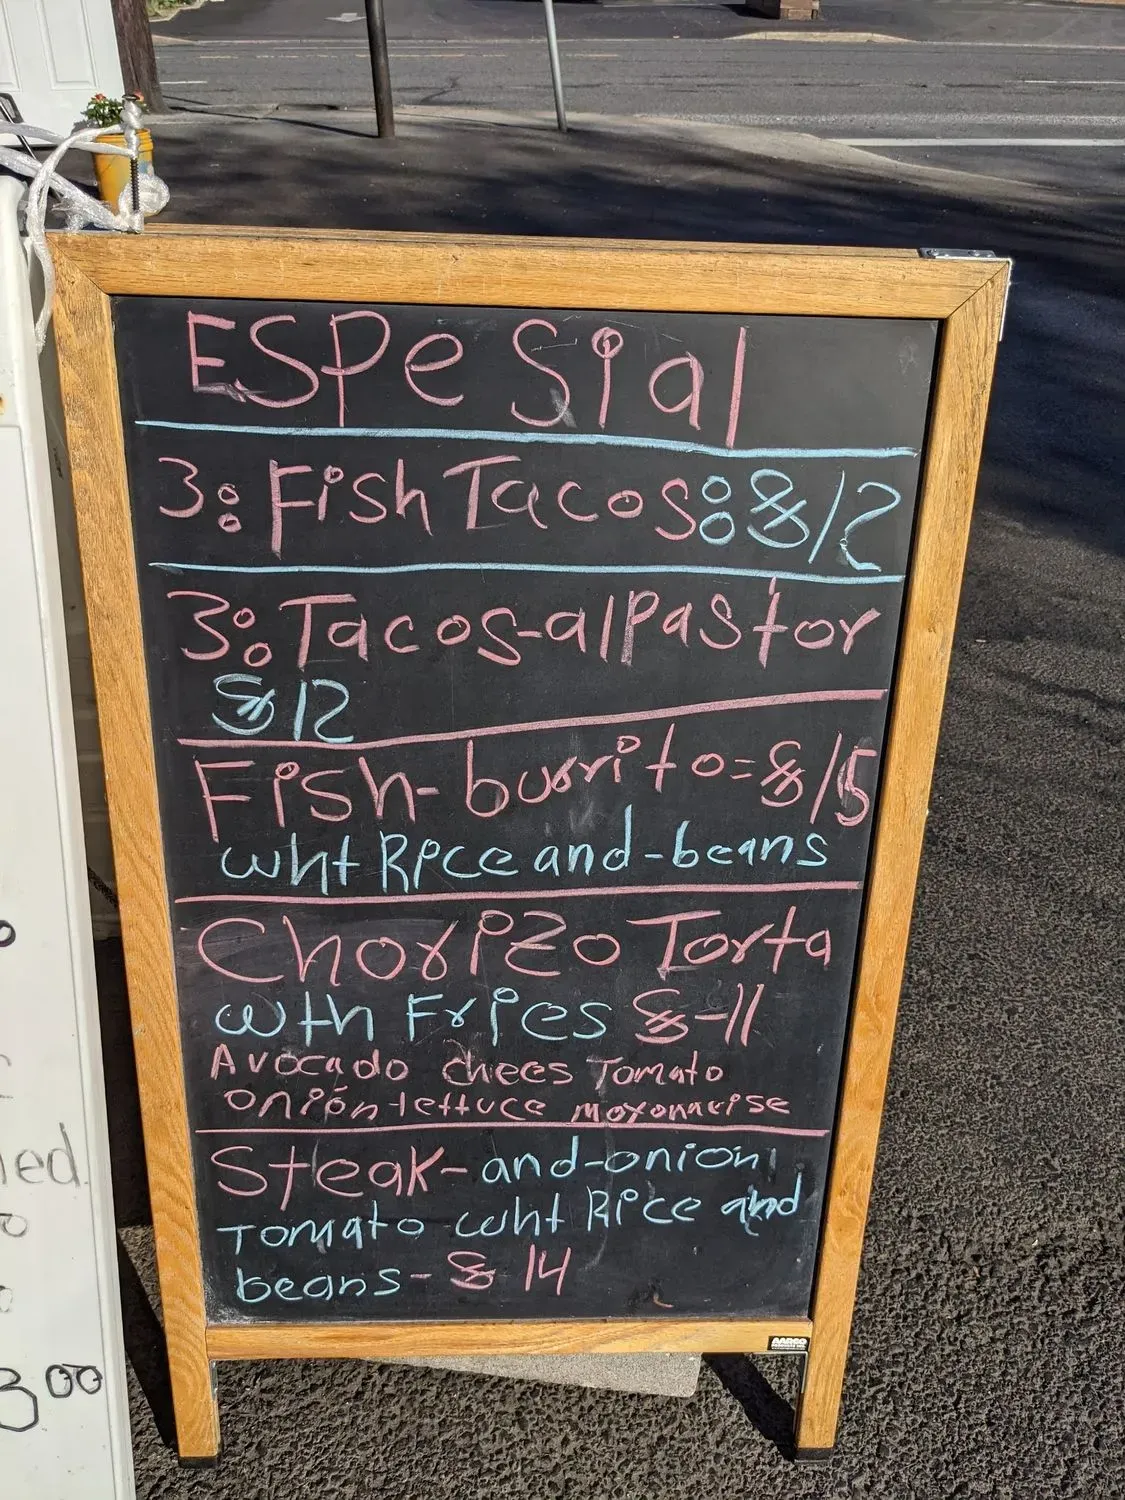 ESPeSial
3: Fish Tacos: $12
3: Tacos-alPastor
$12
Fish-burrito=$15
wht Rice and-beans
Chorizo Torta
wth Fries $-11
Avocado chees Tomato
onion lettuce moyonneise
Steak-and-onion
Tomato wht Rice and
beans-$14
AARCO
ied
300